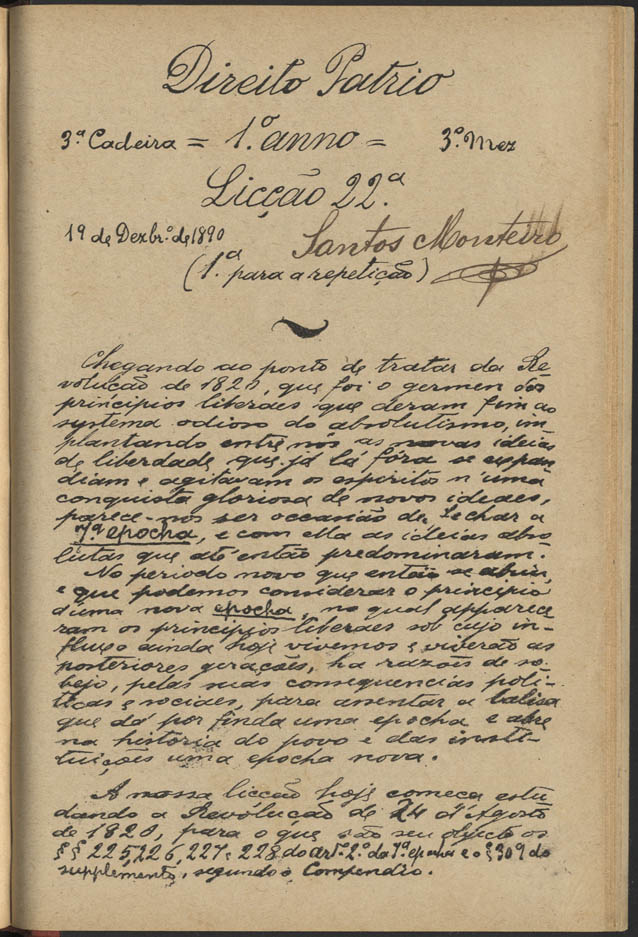 Direito Patrio
3ª Cadeira = 1.º anno = 3.º Mez
Licção 22.ª
19 de Dezbr.º de 1890 Santos Monteiro
(1.ª para a repetição)
Chegando ao ponto de tratar da Re
volução de 1820, que foi o germen dos
principios liberaes que deram fim ao
systema odioso do absolutismo, im-
plantando entre nós as novas ideias
de liberdade que já lá fóra se espan
diam e agitavam os espiritos n'uma
conquista gloriosa de novos ideaes,
parece-nos ser occasião de fechar a
7ª epocha, e com ella as ideias abso
lutas que até então predominaram.
No periodo novo que então se abriu,
e que podemos considerar o principio
d'uma nova epocha, no qual apparece
ram os principios liberaes sob cujo in-
fluxo ainda hoje vivemos e viverão as
posteriores gerações, ha razões de so-
bejo, pelas suas consequencias poli-
ticas e sociaes, para assentar a balisa
que dá por finda uma epocha e abre
na historia do povo e das insti-
tuições uma epocha nova.
A nossa licção hoje começa estu
dando a Revolução de 24 d'Agosto
de 1820, para o que são seu objecto os
§§ 225, 226, 227 e 228 do art.º 2.º da 7ª epocha e o § 309 do
supplemento, segundo o Compendio.